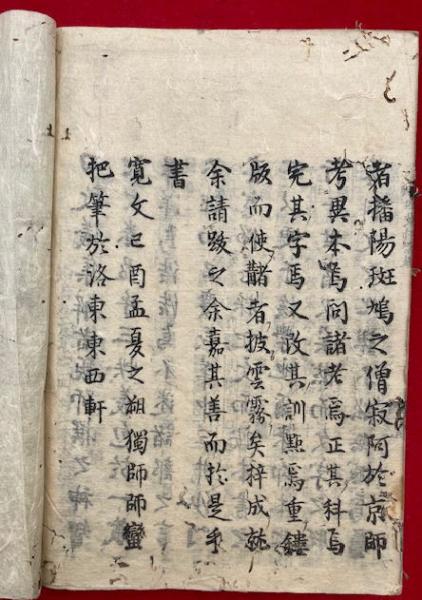 者播陽斑鳩之僧寂阿於京師
考異本焉問諸老焉正其科焉
完其字焉又改其訓點焉重鏤
版而使讎者披雲霧矣梓成就
余請跋之余嘉其善而於是乎
書
寛文己酉孟夏之朔獨師師蠻
把筆於洛東東西軒